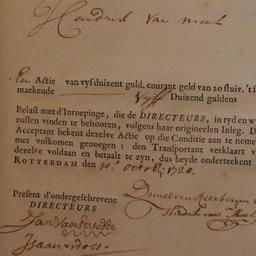 Hendrick van
Een Actie van vyf duizent guld. courant geld van 20 stuiv. 't s
makende Vyff Duizend guldens
Belast met d'Inroepinge, die de DIRECTEURS, in tyd en w
zullen vinden te behooren, volgens haar origineelen Inleg. D
Acceptant bekent dezelve Actie op die Conditie aan te neme
met volkomen genoegen: den Transportant verklaart v
dezelve voldaan en betaalt te zyn, dus beyde onderteekent
ROTTERDAM den 10. Octob, 1720.
Present d'ondergeschrevene
DIRECTEURS
Jan Van